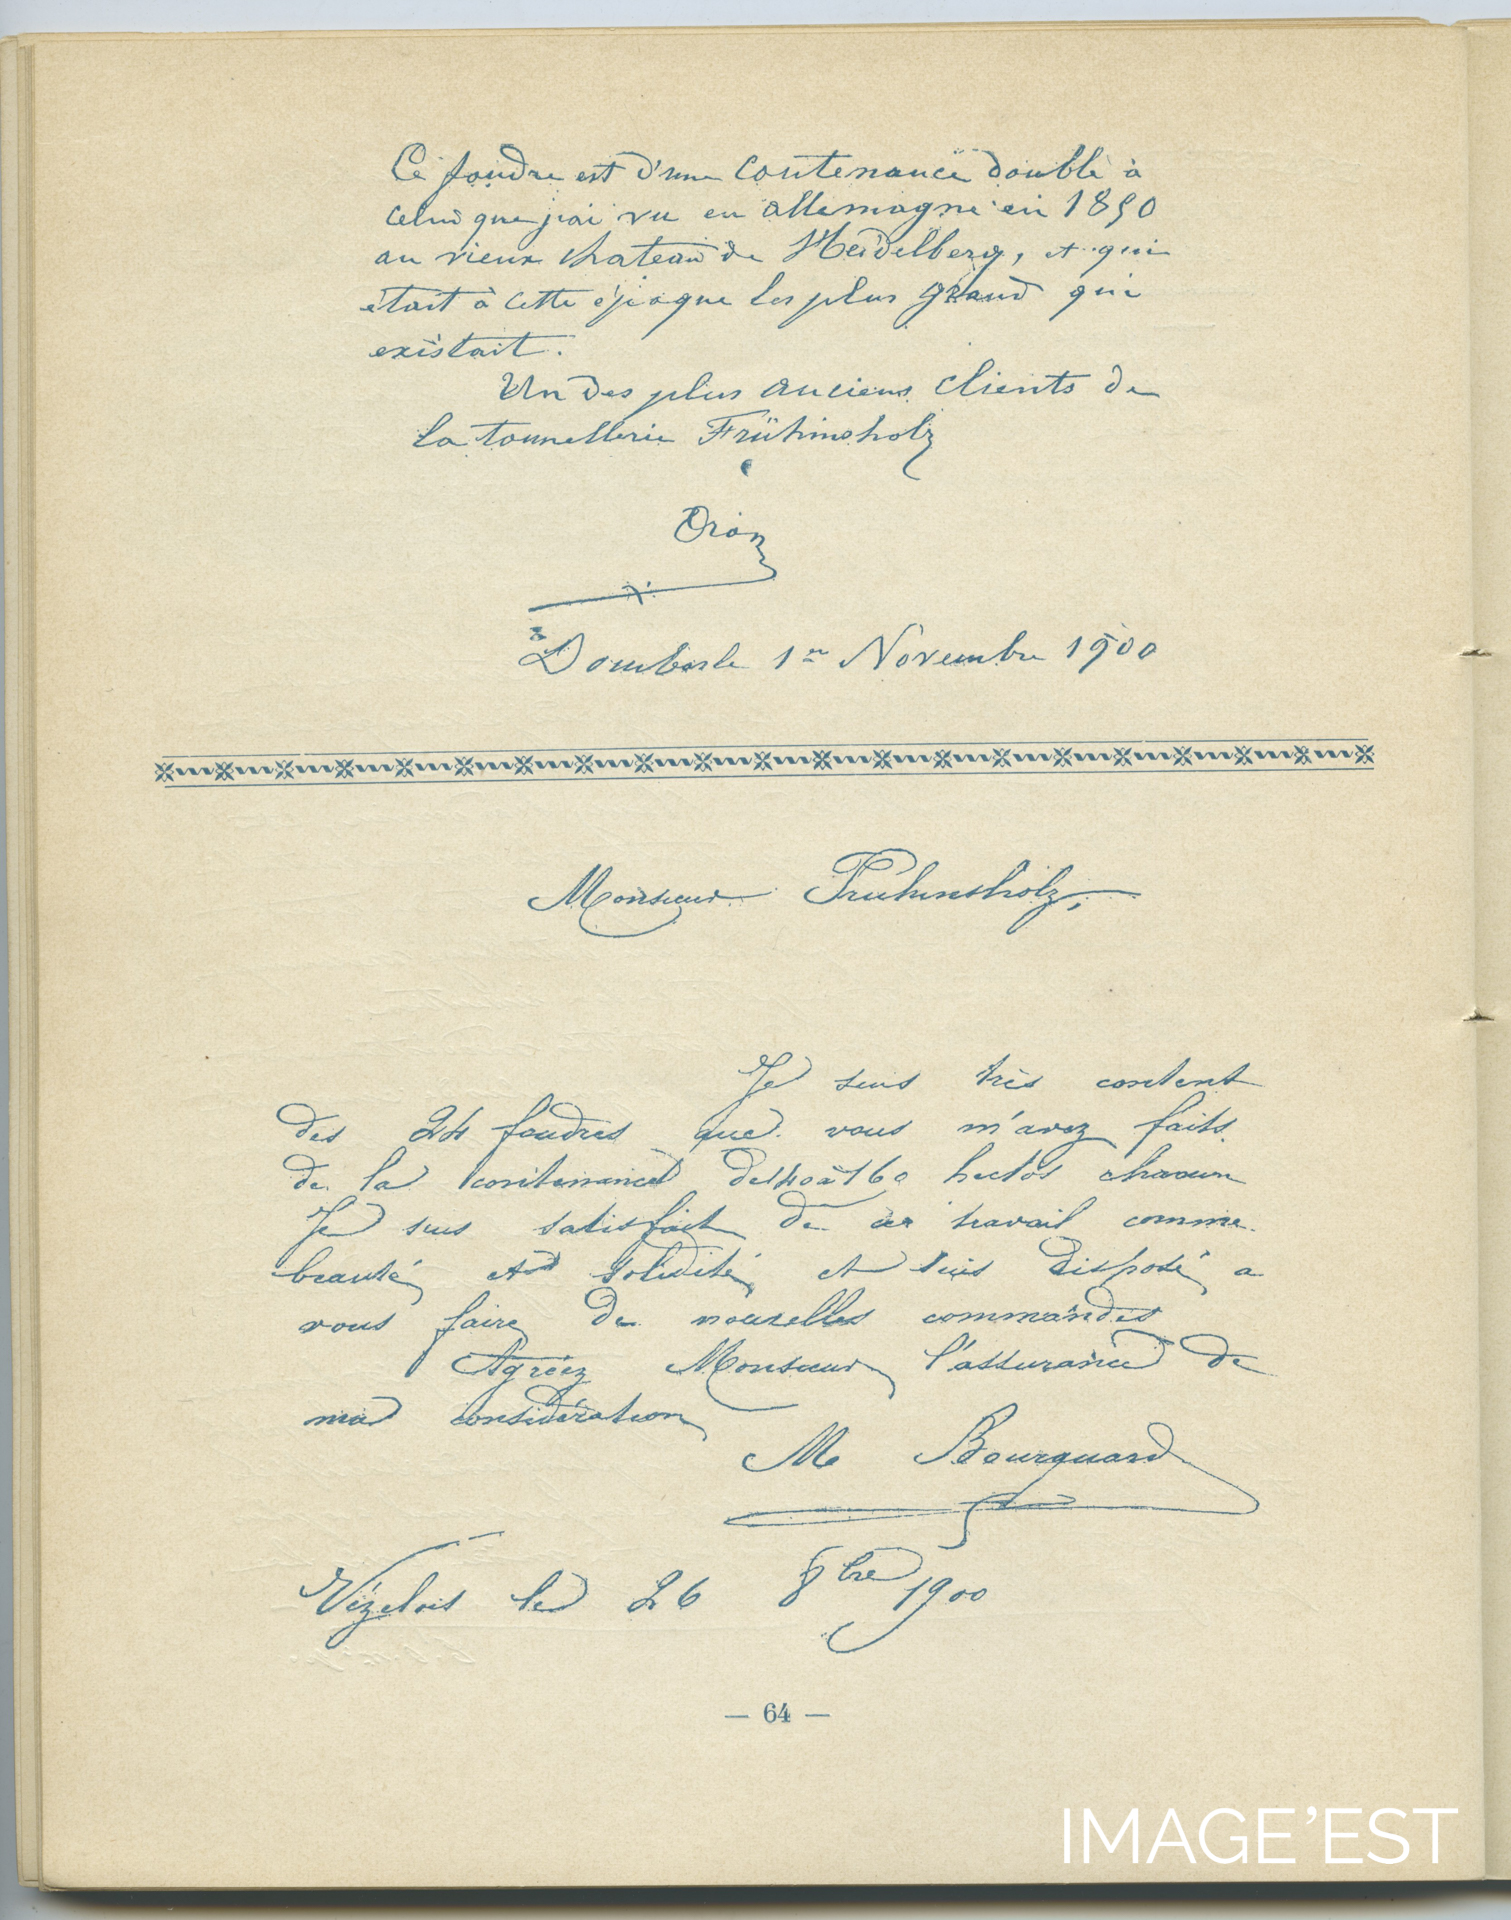 Ce foudre est d'une contenance double à
celui que j'ai vu en allemagne en 1890
au vieux chateau de Heidelberg, et qui
était à cette époque les plus grand qui
existait.
Un des plus anciens clients de
la tonnellerie Frühinsholz
Dombasle 1er Novembre 1900
Monsieur Fruhinsholz,
Je suis très content
des 24 foudres que vous m'avez faits
de la contenance de 140 à 160 hectos chacun
Je suis satisfait de ce travail comme
beauté et solidité et suis disposé a
vous faire de nouvelles commandes
Agréez Monsieur l'assurance de
ma considération
M Bourquard
Vézelois le 26 8bre 1900
— 64 —
IMAGE'EST